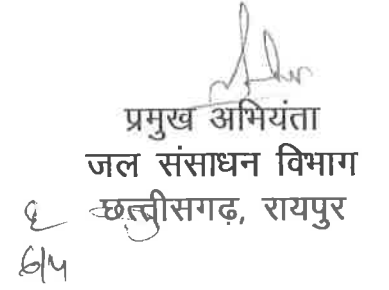 प्रमुख अभियंता
जल संसाधन विभाग
छत्तीसगढ़, रायपुर
6/4